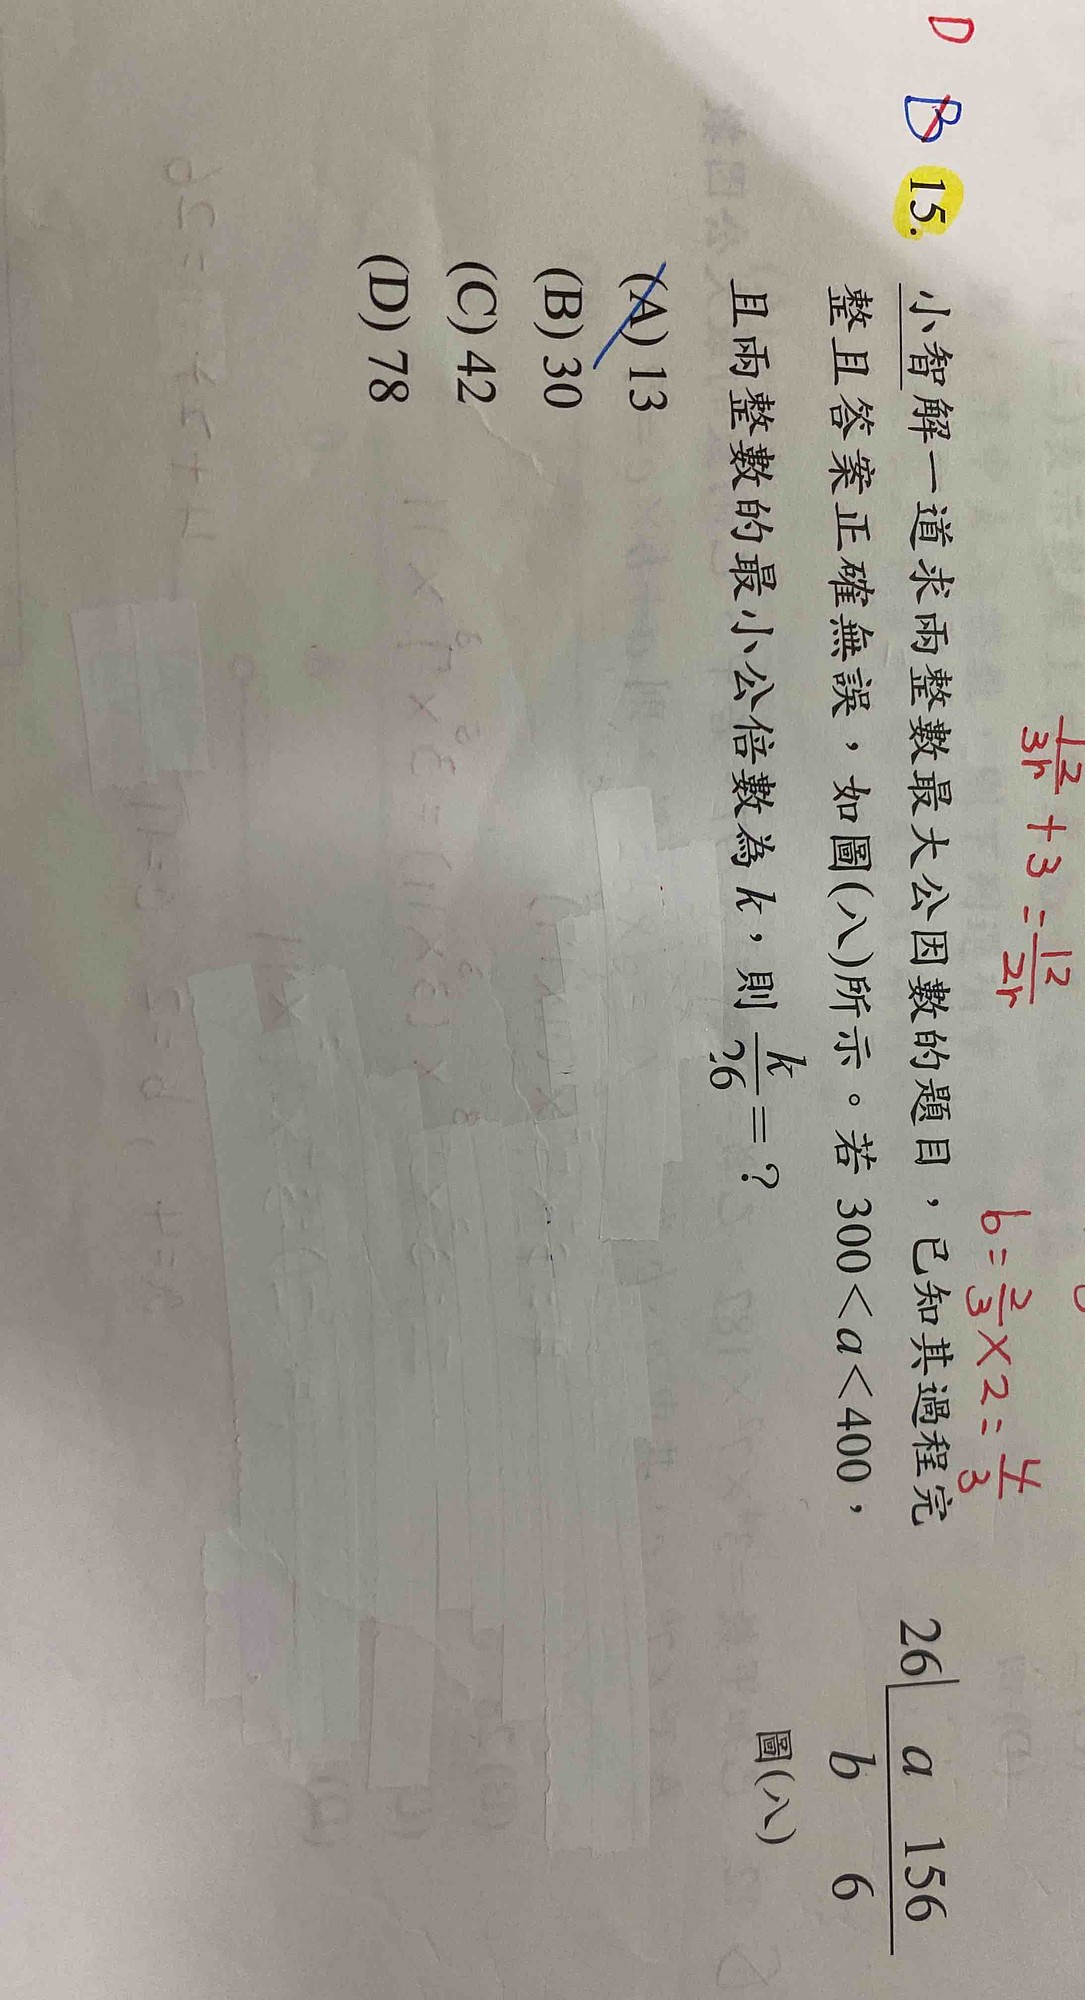 12/3r + 3 = 12/2r
b = 2/3 × 2 = 4/3
D B 15. 小智解一道求兩整數最大公因數的題目，已知其過程完
整且答案正確無誤，如圖(八)所示。若 300 < a < 400，
且兩整數的最小公倍數為 k，則 k/26 = ?
(A) 13
(B) 30
(C) 42
(D) 78
26| a 156
b 6
圖(八)